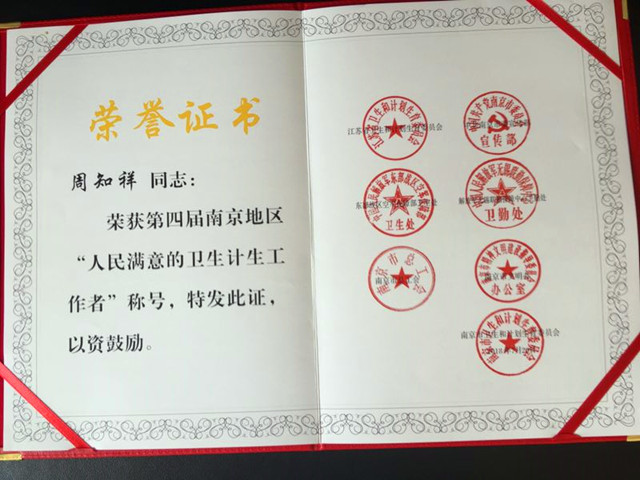 荣誉证书
周知祥 同志：
荣获第四届南京地区
“人民满意的卫生计生工
作者”称号，特发此证，
以资鼓励。
江苏省卫生和计划生育委员会
宣传部
卫生处
卫勤处
南京市总工会
办公室
南京市卫生和计划生育委员会